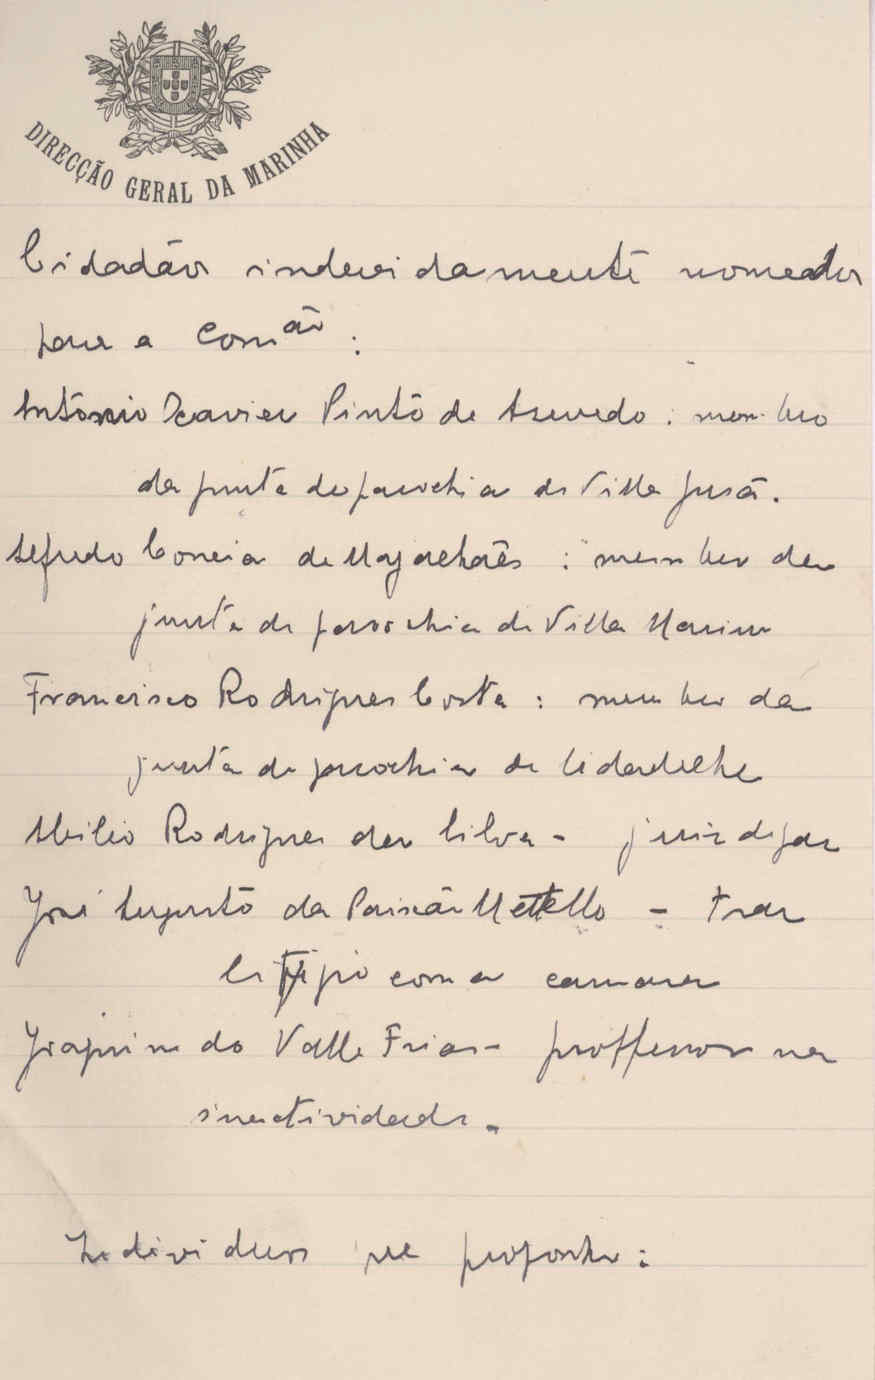 DIRECÇÃO GERAL DA MARINHA
Cidadãos indevidamente nomeados
para a Comᵃᵒ:
António Xavier Pinto de Azevedo: membro
da junta de parochia de Villa Jusã.
Alfredo Correia de Magalhães: membro da
junta de parochia de Villa Marim
Francisco Rodrigues Costa: membro da
junta de parochia de Cidadelhe
Abilio Rodrigues da Silva - juiz de paz
José Augusto da Paixão Mettello - traz
litigio com a camara
Joaquim do Valle Frias - proffessor na
inactividade.
Individuos que proponho: